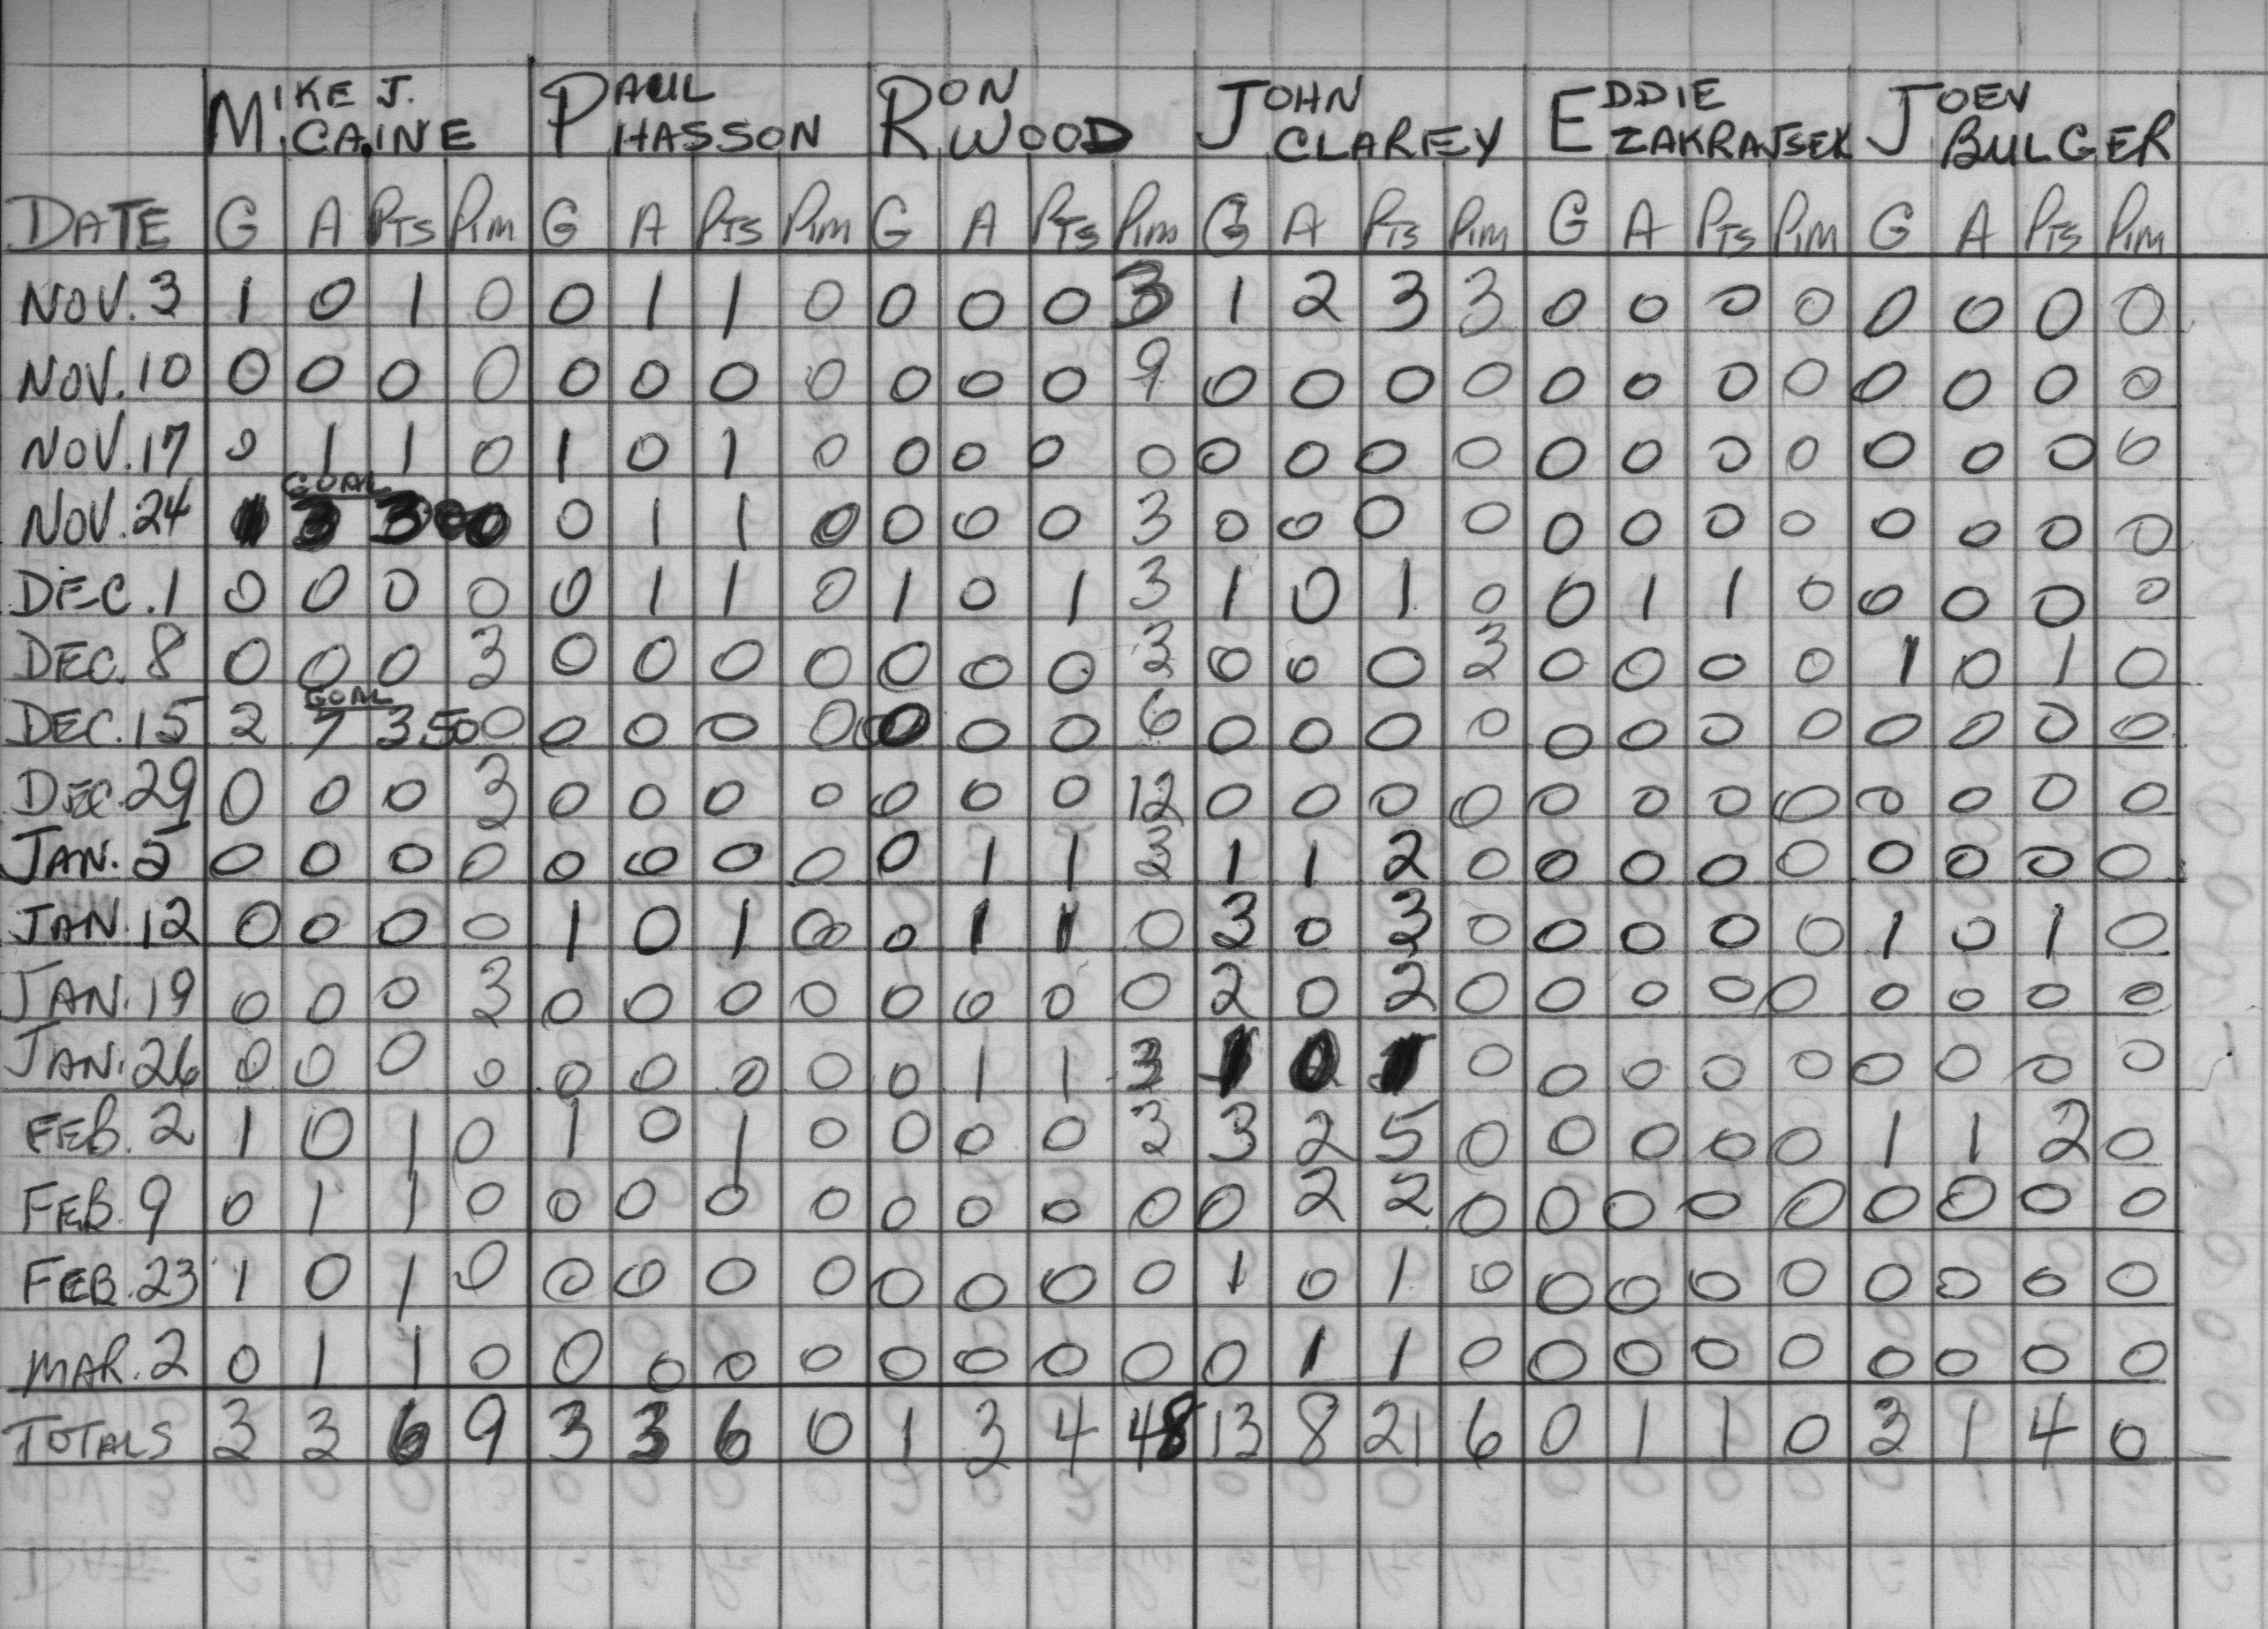 MIKE J. CAINE PAUL HASSON RON WOOD JOHN CLAREY EDDIE ZAKRAJSEK JOEY BULGER
DATE G A PTS PIM G A PTS PIM G A PTS PIM G A PTS PIM G A PTS PIM G A PTS PIM
NOV. 3 1 0 1 0 0 1 1 0 0 0 0 3 1 2 3 3 0 0 0 0 0 0 0 0
NOV. 10 0 0 0 0 0 0 0 0 0 0 0 9 0 0 0 0 0 0 0 0 0 0 0 0
NOV. 17 0 1 1 0 1 0 1 0 0 0 0 0 0 0 0 0 0 0 0 0 0 0 0 0
GOAL
NOV. 24 3 3 00 0 1 1 0 0 0 0 3 0 0 0 0 0 0 0 0 0 0 0 0
DEC. 1 0 0 0 0 0 1 1 0 1 0 1 3 1 0 1 0 0 1 1 0 0 0 0 0
DEC. 8 0 0 0 3 0 0 0 0 0 0 0 3 0 0 0 3 0 0 0 0 1 0 1 0
GOAL
DEC. 15 2 7 3.50 0 0 0 0 0 0 0 0 6 0 0 0 0 0 0 0 0 0 0 0 0
DEC. 29 0 0 0 3 0 0 0 0 0 0 0 12 0 0 0 0 0 0 0 0 0 0 0 0
JAN. 5 0 0 0 0 0 0 0 0 0 1 1 3 1 1 2 0 0 0 0 0 0 0 0 0
JAN. 12 0 0 0 0 1 0 1 0 0 1 1 0 3 0 3 0 0 0 0 0 1 0 1 0
JAN. 19 0 0 0 3 0 0 0 0 0 0 0 0 2 0 2 0 0 0 0 0 0 0 0 0
JAN. 26 0 0 0 0 0 0 0 0 0 1 1 3 1 0 1 0 0 0 0 0 0 0 0 0
FEB. 2 1 0 1 0 1 0 1 0 0 0 0 3 3 2 5 0 0 0 0 0 1 1 2 0
FEB. 9 0 1 1 0 0 0 0 0 0 0 0 0 0 2 2 0 0 0 0 0 0 0 0 0
FEB. 23 1 0 1 0 0 0 0 0 0 0 0 0 1 0 1 0 0 0 0 0 0 0 0 0
MAR. 2 0 1 1 0 0 0 0 0 0 0 0 0 0 1 1 0 0 0 0 0 0 0 0 0
TOTALS 3 3 6 9 3 3 6 0 1 3 4 48 13 8 21 6 0 1 1 0 3 1 4 0